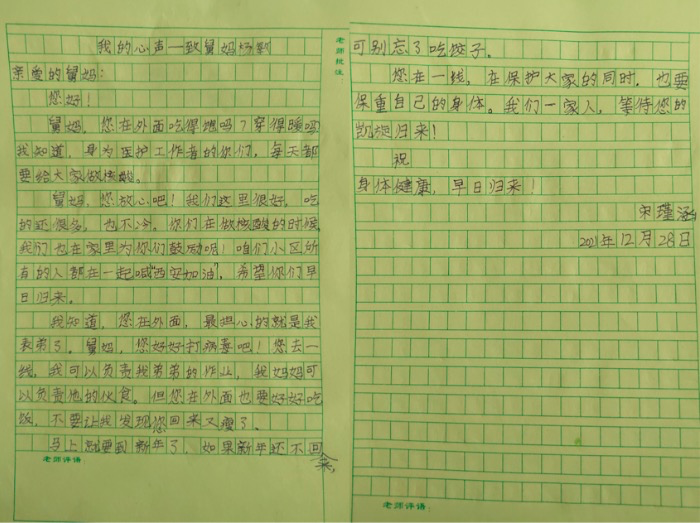 我的心声—致舅妈杨
亲爱的舅妈：
您好！
舅妈，您在外面吃得饱吗？穿得暖吗？
我知道，身为医护工作者的你们，每天都
要给大家做核酸。
舅妈，您放心吧！我们这里很好，吃
的还很多，也不冷。你们在做核酸的时候，
我们也在家里为你们鼓励呢！咱们小区所
有的人都在一起喊“西安加油”，希望你们早
日归来。
我知道，您在外面，最担心的就是我
表弟了。舅妈，您好好打病毒吧！您去一
线，我可以负责我弟弟的作业，我妈妈可
以负责他的伙食。但您在外面也要好好吃
饭，不要让我发现您回来又瘦了。
马上就要到新年了，如果新年还不回
来，
老师评语：
老师批注
可别忘了吃饺子。
您在一线，在保护大家的同时，也要
保重自己的身体。我们一家人，等待您的
凯旋归来！
祝
身体健康，早日归来！
宋瑾涵
2021年12月28日
老师评语：